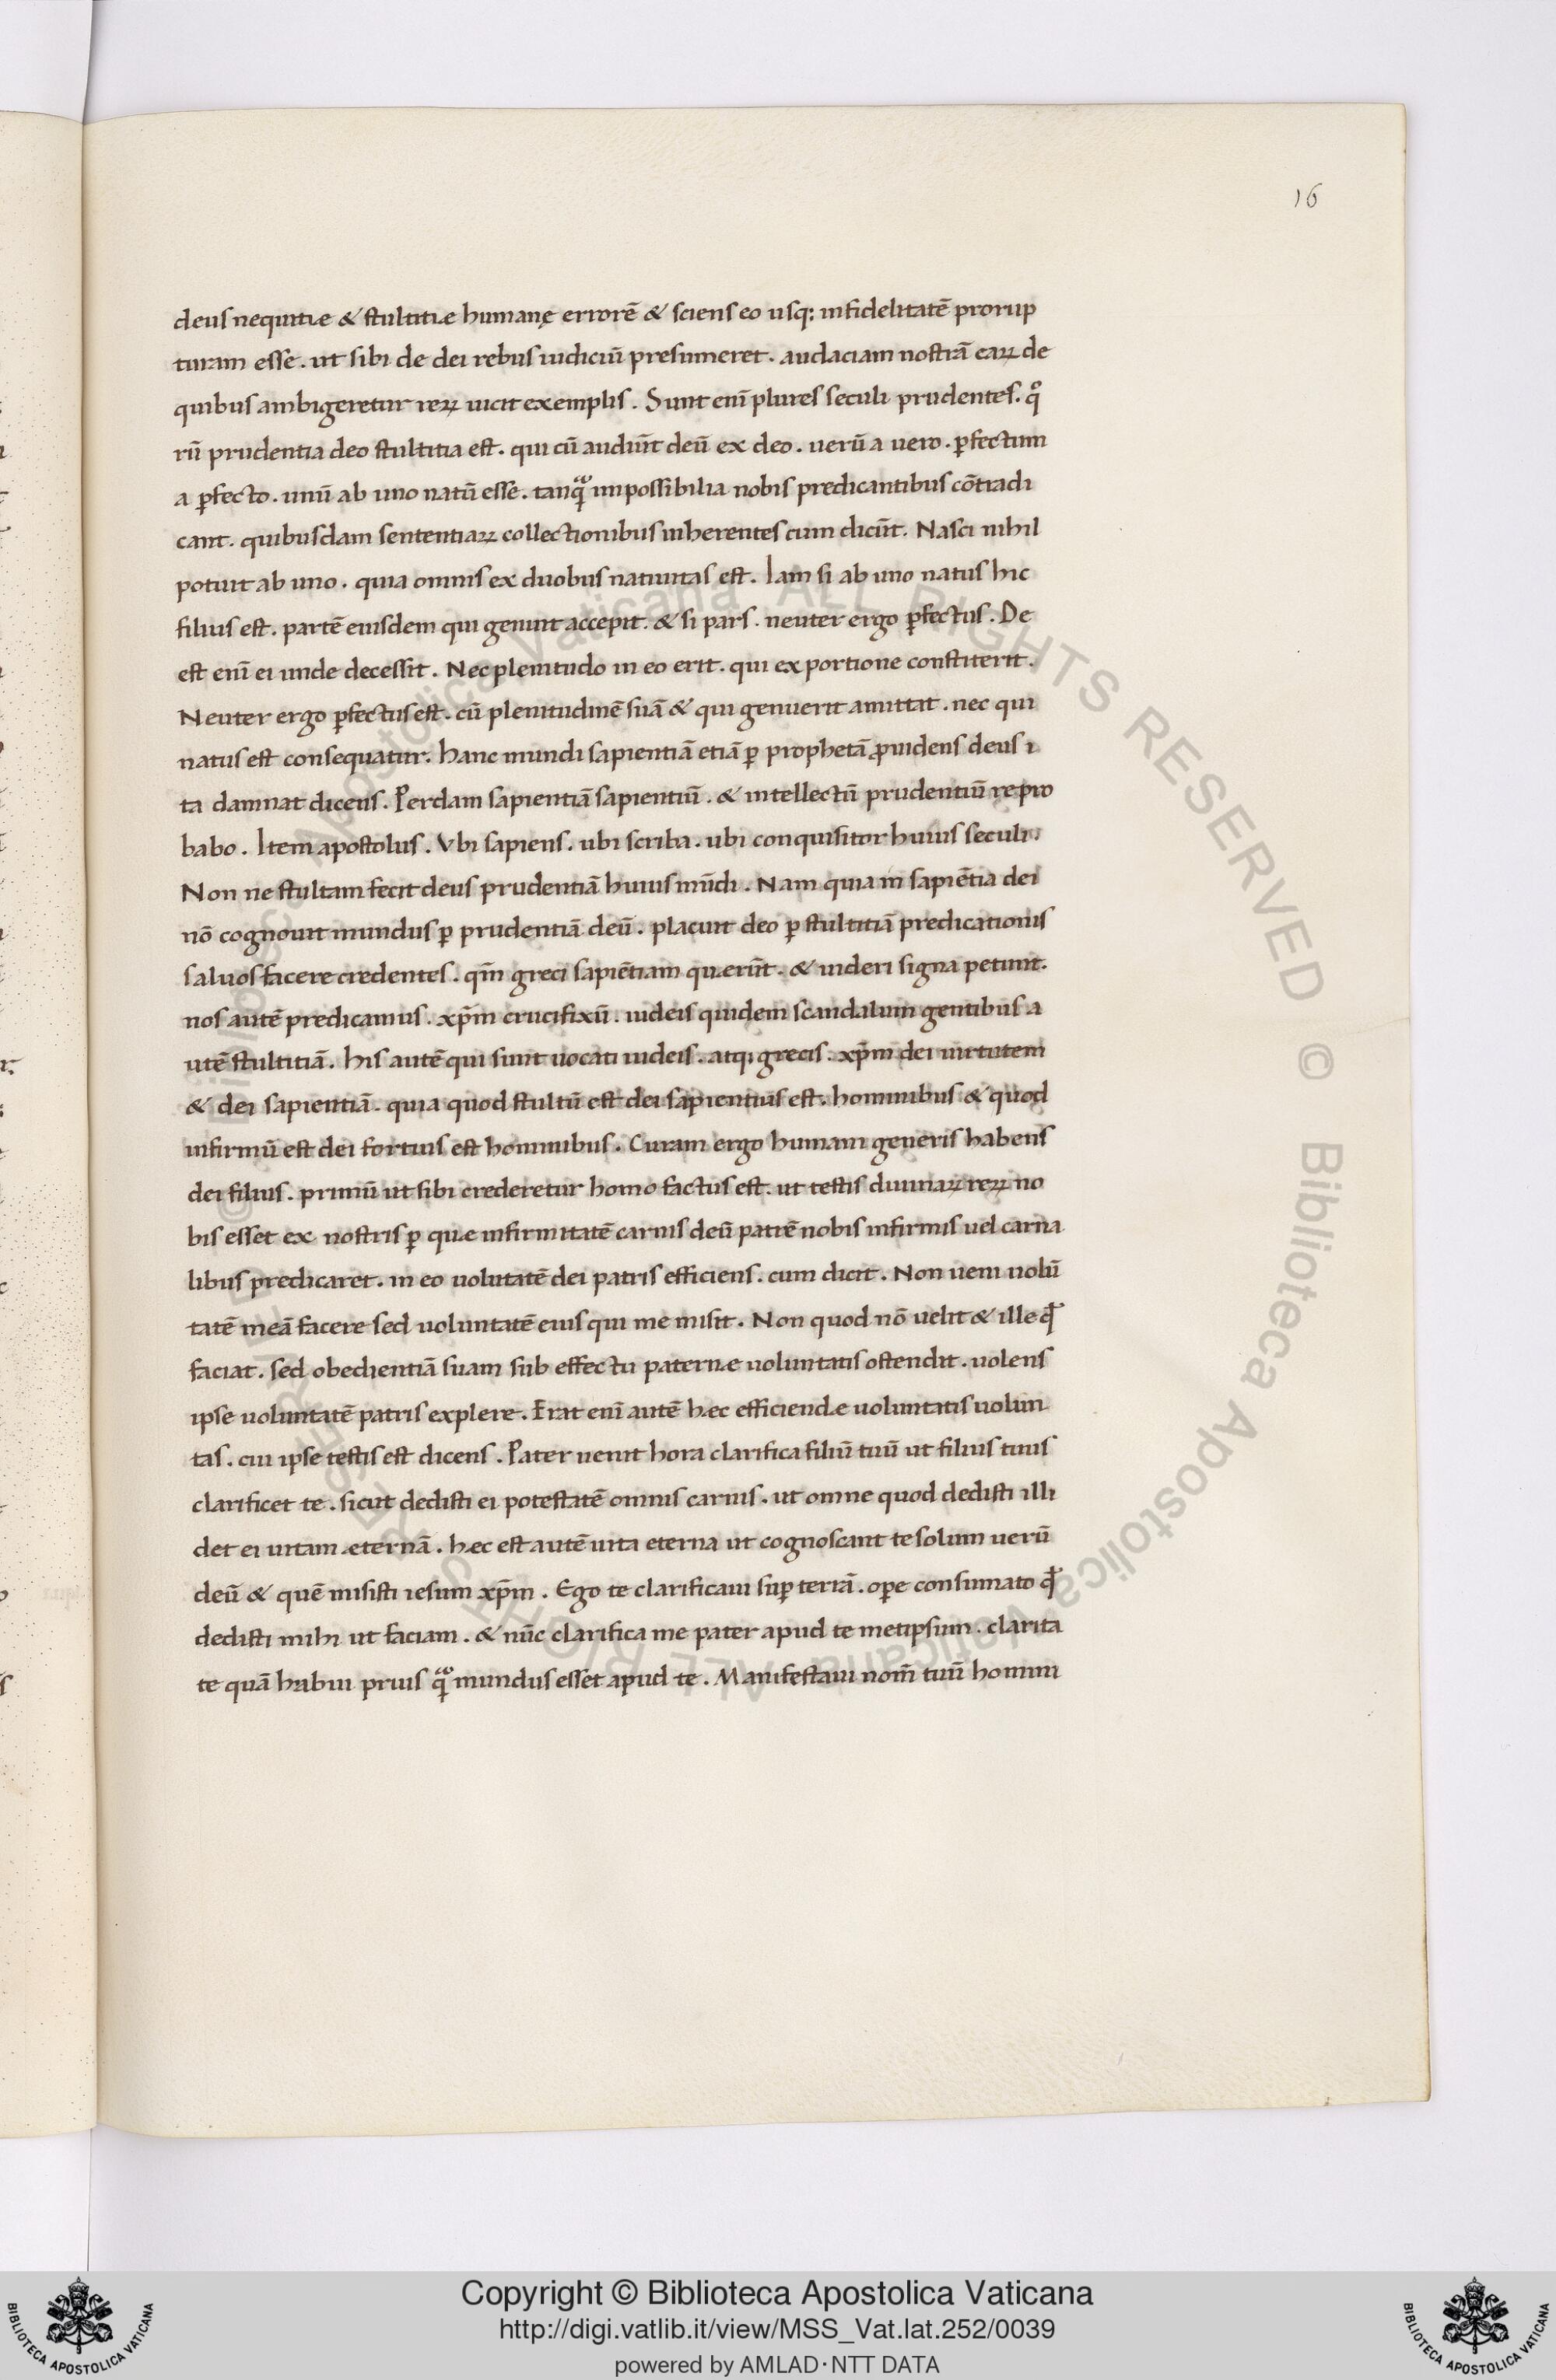 16
deus nequitiæ & stultitiæ humanę errorē & sciens eo usq; infidelitatē prorup
turam esse. ut sibi de dei rebus iudiciū presumeret. audaciam nostrā eaꝝ de
quibus ambigeretur reꝝ uicit exemplis. Sunt enī plures seculi prudentes. qͦ
rū prudentia deo stultitia est. qui cū audiūt deū ex deo. uerū a uero. ꝑfectum
a ꝑfecto. unū ab uno natū esse. tanqᷓ impossibilia nobis predicantibus cōtradi
cant. quibusdam sententiaꝝ collectionibus inherentes cum dicūt. Nasci nihil
potuit ab uno. quia omnis ex duobus natiuitas est. Iam si ab uno natus hic
filius est. partē eiusdem qui genuit accepit. & si pars. neuter ergo ꝑfectus. De
est enī ei unde decessit. Nec plenitudo in eo erit. qui ex portione constiterit.
Neuter ergo ꝑfectus est. cū plenitudinē suā & qui genuerit amittat. nec qui
natus est consequatur. hanc mundi sapientiā etiā ꝑ prophetā ꝓuidens deus i
ta damnat dicens. Perdam sapientiā sapientiū. & intellectū prudentiū repro
babo. Item apostolus. Vbi sapiens. ubi scriba. ubi conquisitor huius seculi.
Non ne stultam fecit deus prudentiā huius mūdi. Nam quia in sapiētia dei
nō cognouit mundus ꝑ prudentiā deū. placuit deo ꝑ stultitiā predicationis
saluos facere credentes. qm̄ greci sapiētiam quærūt. & iuderi signa petunt.
nos autē predicamus. xp̄m crucifixū. iudeis quidem scandalum gentibus a
utē stultitiā. his autē qui sunt uocati iudeis. atq; grecis. xp̄m dei uirtutem
& dei sapientiā. quia quod stultū est dei sapientius est. hominibus & quod
infirmū est dei fortius est hominibus. Curam ergo humani generis habens
dei filius. primū ut sibi crederetur homo factus est. ut testis diuinaꝝ reꝝ no
bis esset ex nostris ꝑ quæ infirmitatē carnis deū patrē nobis infirmis uel carna
libus predicaret. in eo uolutatē dei patris efficiens. cum dicit. Non ueni uolū
tatē meā facere sed uoluntatē eius qui me misit. Non quod nō uelit & ille qđ
faciat. sed obedientiā suam sub effectu paternæ uoluntatis ostendit. uolens
ipse uoluntatē patris explere. Erat enī autē hæc efficiendæ uoluntatis uolun
tas. cui ipse testis est dicens. Pater uenit hora clarifica filiū tuū ut filius tuus
clarificet te. sicut dedisti ei potestatē omnis carnis. ut omne quod dedisti illi
det ei uitam æternā. hæc est autē uita eterna ut cognoscant te solum uerū
deū & quē misisti iesum xp̄m. Ego te clarificaui suꝑ terrā. oꝑe consumato qđ
dedisti mihi ut faciam. & nūc clarifica me pater apud te metipsum. clarita
te quā habui prius qᷓ mundus esset apud te. Manifestaui nom̄ tuū homini
Copyright © Biblioteca Apostolica Vaticana
http://digi.vatlib.it/view/MSS_Vat.lat.252/0039
powered by AMLAD·NTT DATA